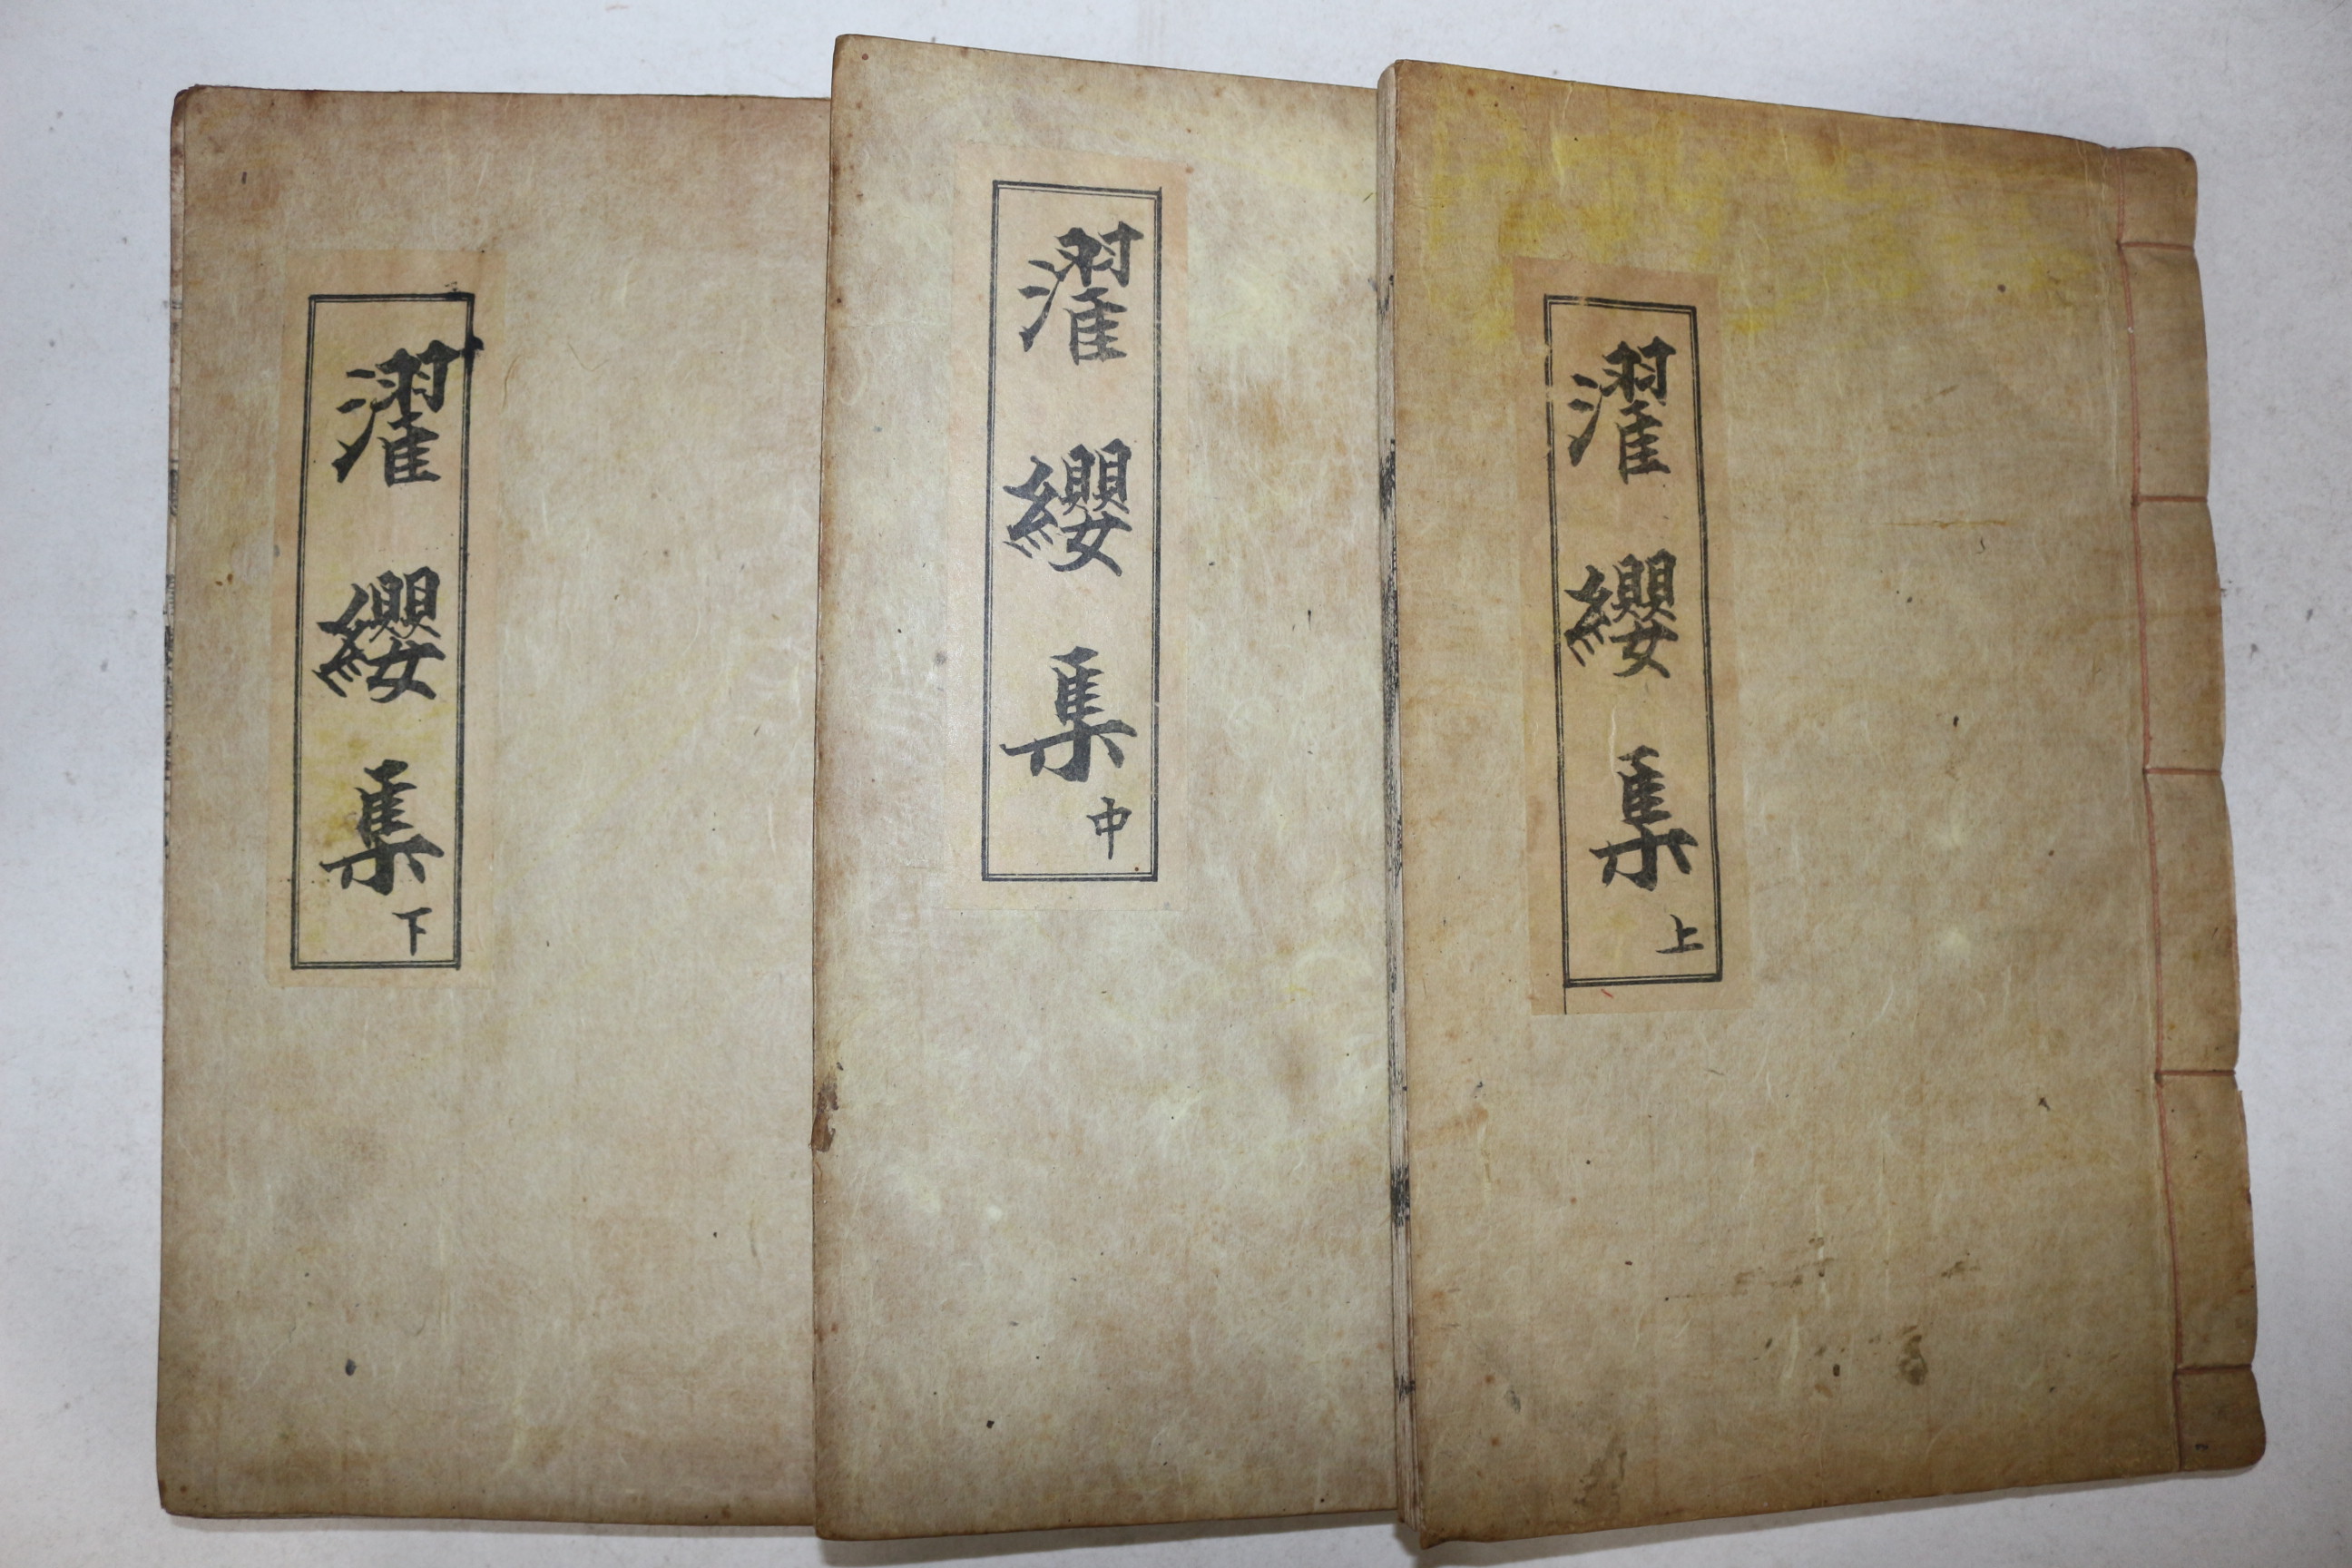 濯纓集上
濯纓集中
濯纓集下